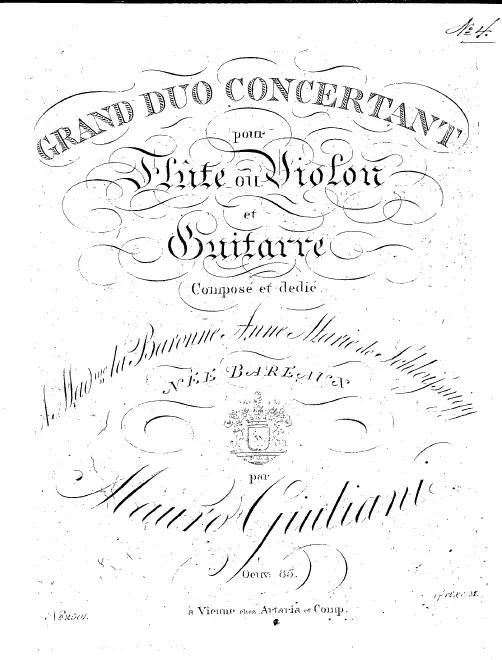 No. 4.
GRAND DUO CONCERTANT
pour
Flûte ou Violon
et
Guitarre
Composé et dedié
A Madme la Baronne Anne Marie de Schleÿsnigg
NÉE BAREAUX
par
Mauro Giuliani
Oeuv: 85.
No 2501.
à Vienne chez Artaria et Comp.